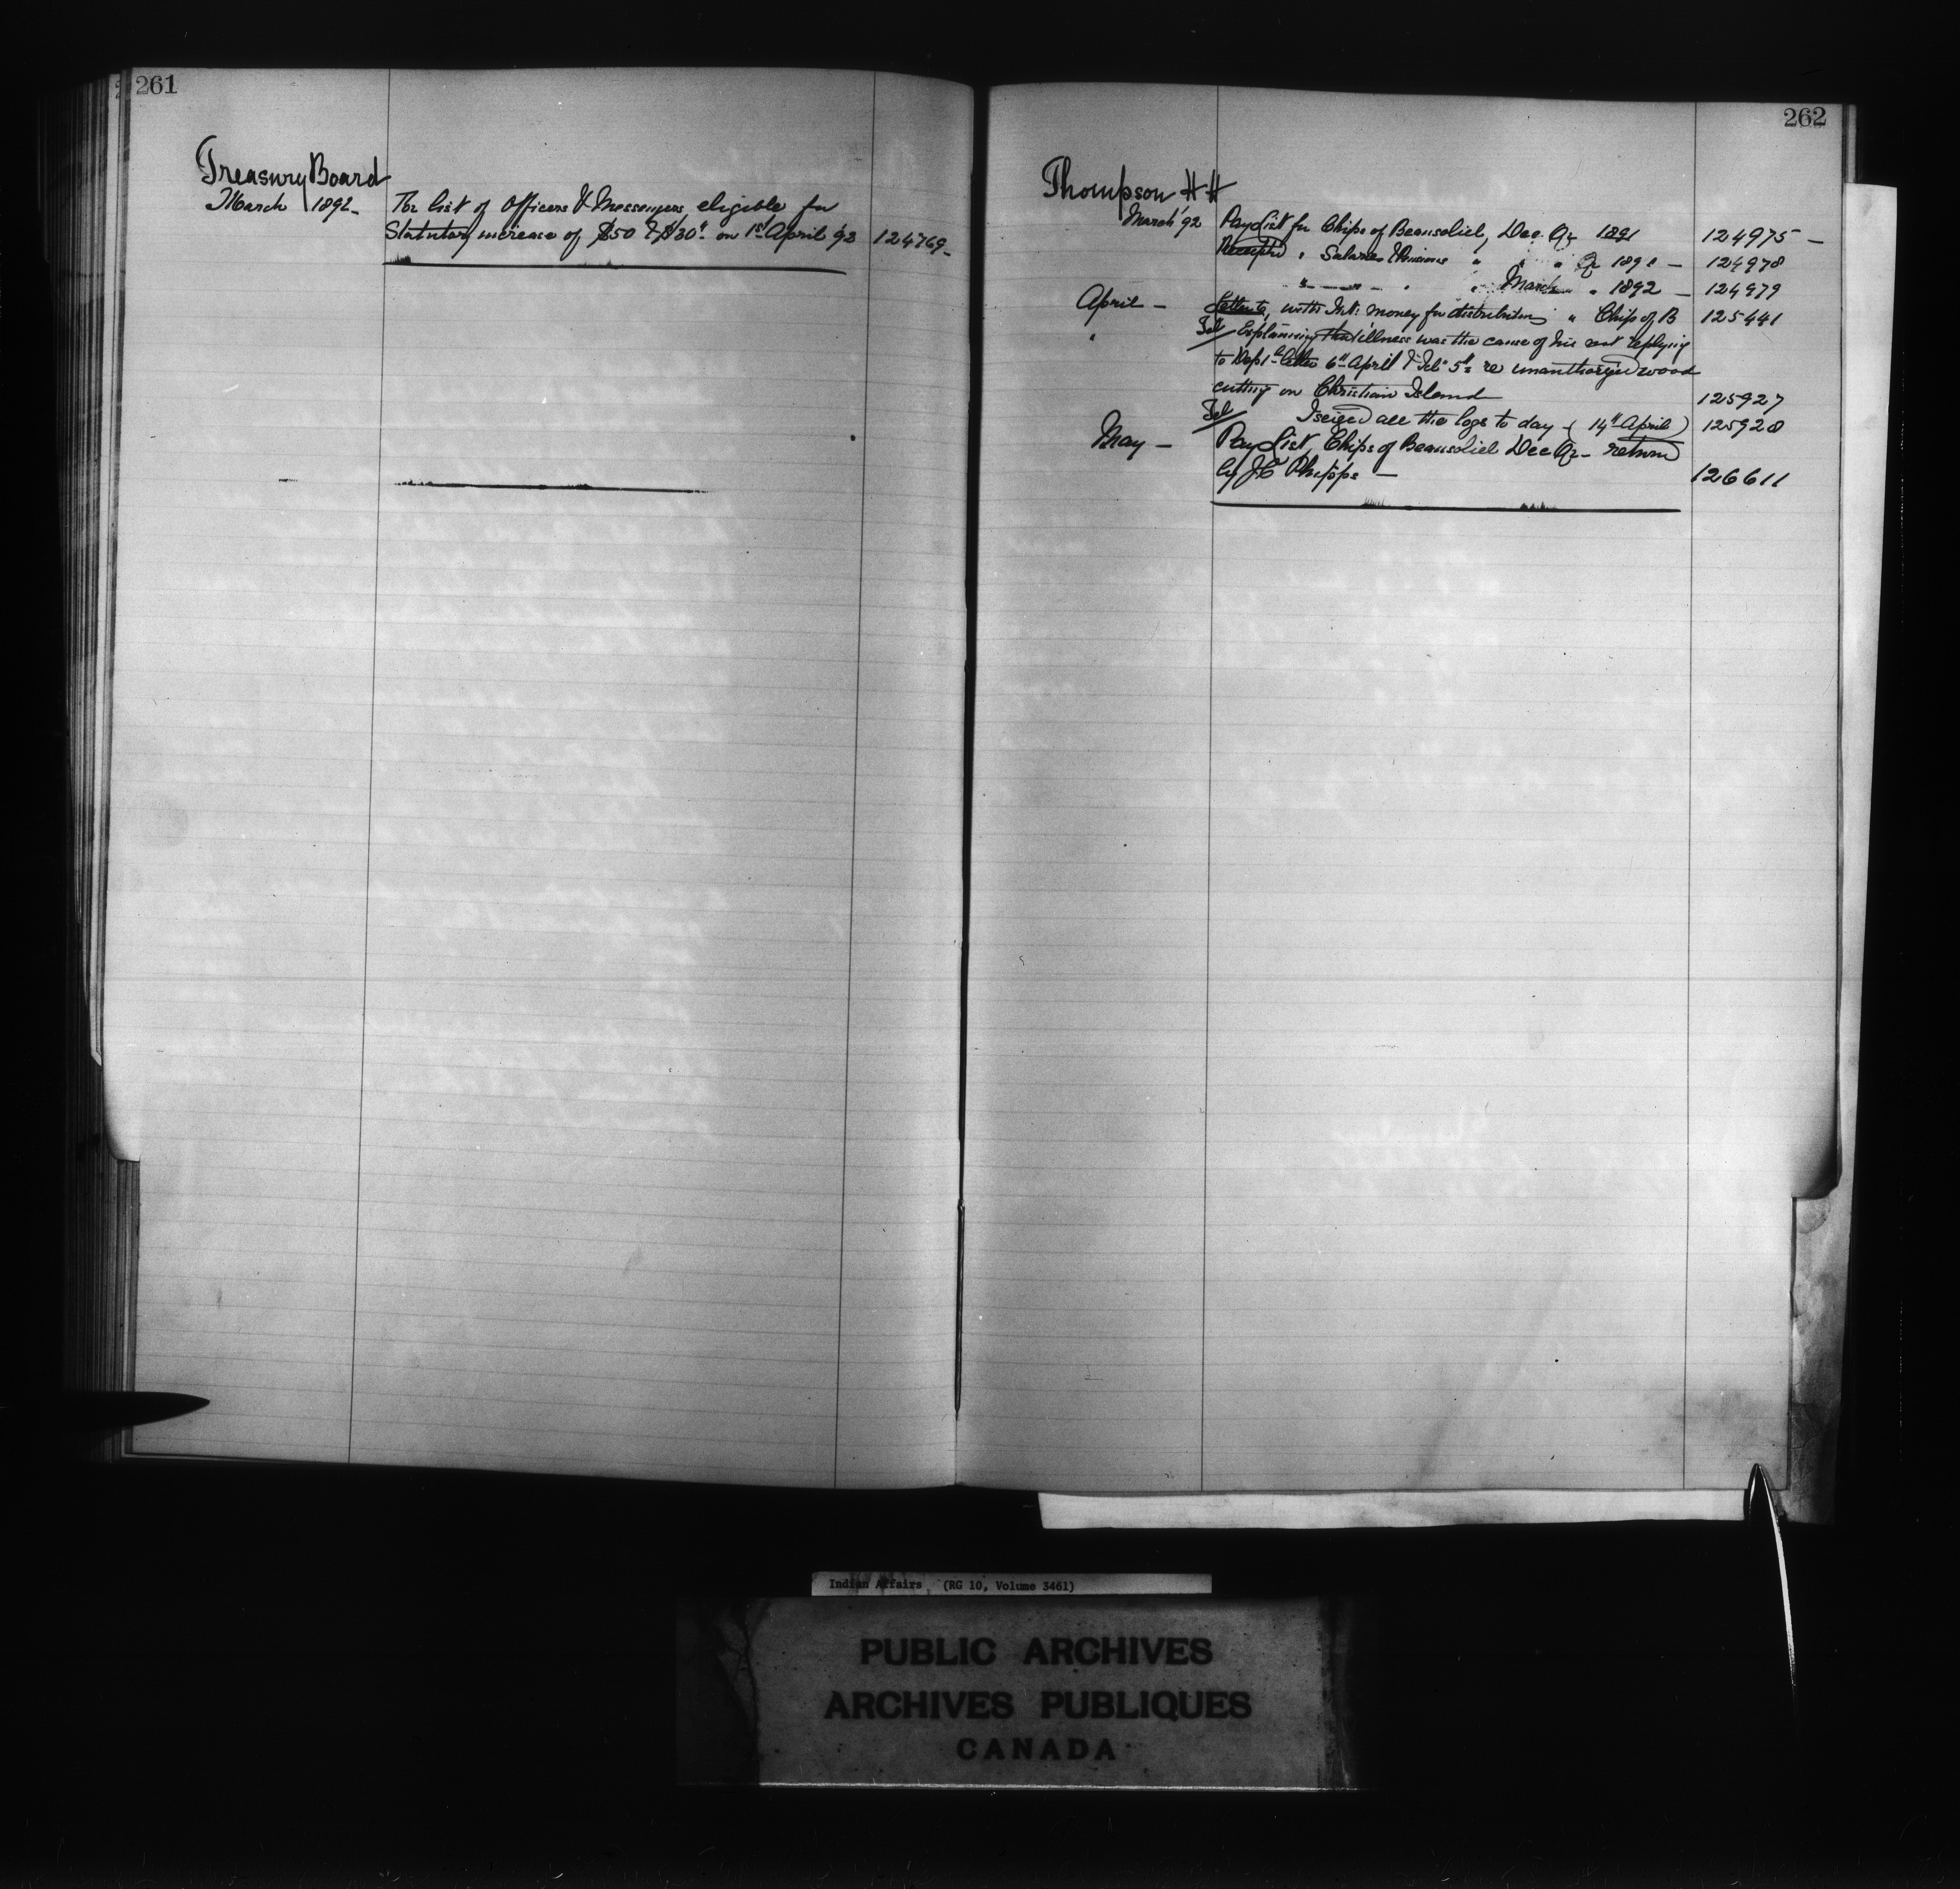 261
Treasury Board
March 1892_ The list of Officers & Messengers eligible for
Statutory increase of $50 & $30. on 1st April 92 124769_
262
Thompson H H
March '92 Pay List for Chips of Beausoliel, Dec. Qr 1891 124975 _
Receipted " Salaries & Pensions " " " Qr 1891 _ 124978
" _ _ _ " " March " 1892 _ 124979
April _ Letter to, with Int: money for distribution " Chip of B 125441
" Tel Explaining that illness was the cause of his not replying
to Dept letter 6th April & Feb 5th re unauthorized wood
cutting on Christian Island 125927
Tel I seized all the logs to day ( 14th April ) 125928
May _ Pay List Chips of Beausoliel Dec Qr _ return
by J C Phipps _ 126611
Indian Affairs (RG 10, Volume 3461)
PUBLIC ARCHIVES
ARCHIVES PUBLIQUES
CANADA